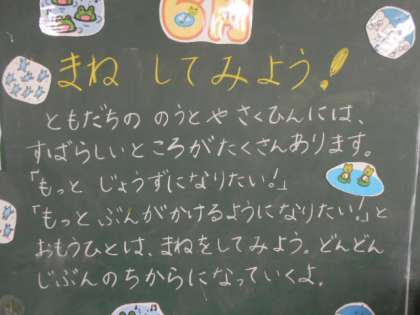 6月
まね してみよう!
ともだちの のうとや さくひんには、
すばらしいところがたくさんあります。
「もっと じょうずになりたい!」
「もっと ぶんがかけるようになりたい!」と
おもうひとは、まねをしてみよう。どんどん
じぶんのちからになっていくよ。